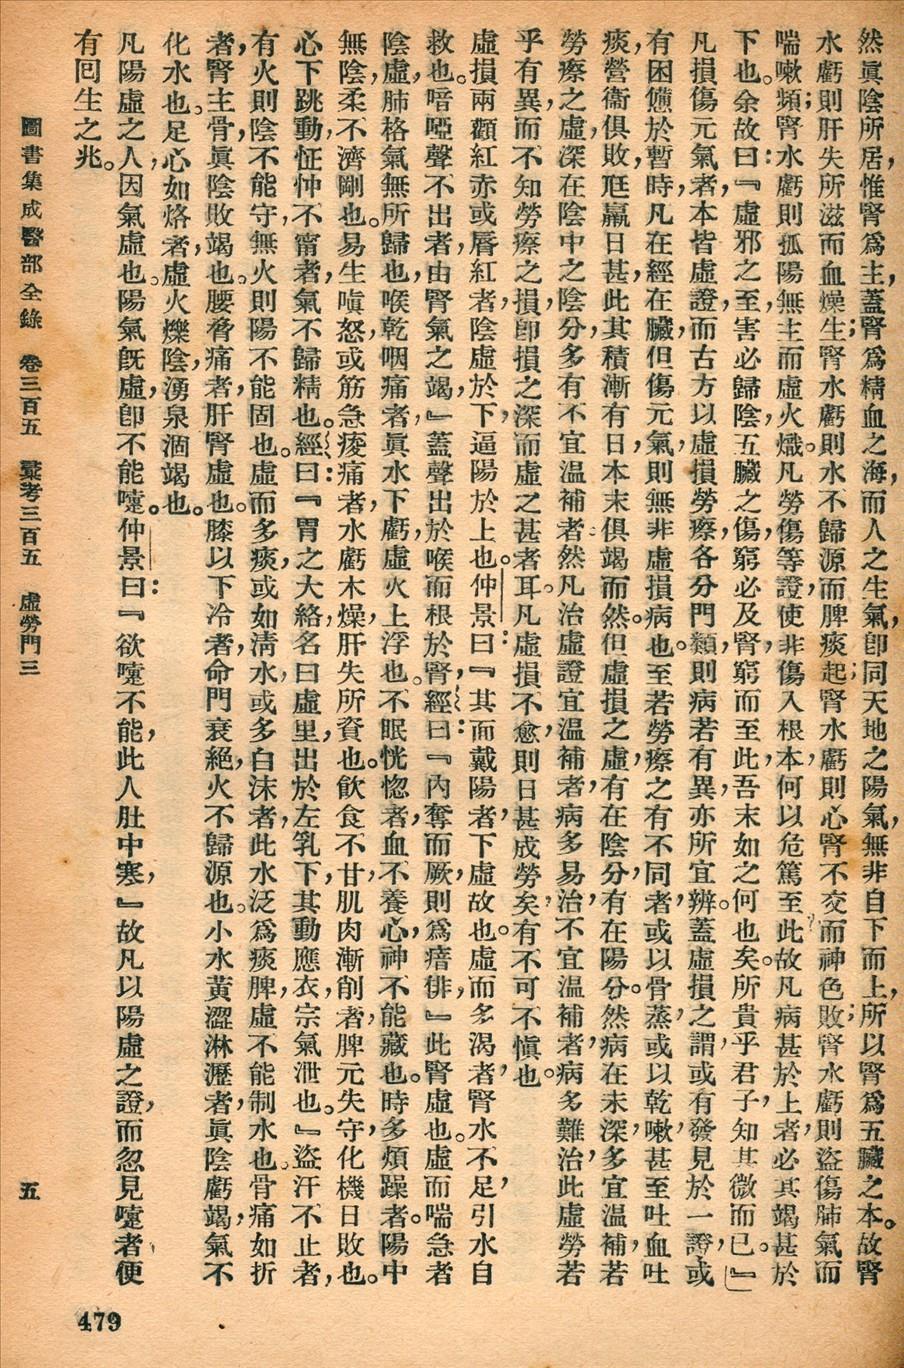 然眞陰所居，惟腎爲主，蓋腎爲精血之海，而人之生氣，卽同天地之陽氣，無非自下而上，所以腎爲五臟之本。故腎
水虧則肝失所滋而血燥生；腎水虧則水不歸源而脾痰起；腎水虧則心腎不交而神色敗；腎水虧則盜傷肺氣而
喘嗽頻；腎水虧則孤陽無主而虛火熾。凡勞傷等證，使非傷入根本，何以危篤至此？故凡病甚於上者，必其竭甚於
下也。余故曰：『虛邪之至，害必歸陰，五臟之傷，窮必及腎，窮而至此，吾末如之何也矣。所貴乎君子，知其微而已。』
凡損傷元氣者，本皆虛證，而古方以虛損勞瘵，各分門類，則病若有異，亦所宜辨。蓋虛損之謂，或有發見於一證，或
有困憊於暫時，凡在經在臟，但傷元氣，則無非虛損病也。至若勞瘵之有不同者，或以骨蒸，或以乾嗽，甚至吐血吐
痰，營衞俱敗，尫羸日甚，此其積漸有日，本末俱竭而然。但虛損之虛，有在陰分，有在陽分。然病在未深，多宜溫補；若
勞瘵之虛，深在陰中之陰分，多有不宜溫補者。然凡治虛證，宜溫補者，病多易治，不宜溫補者，病多難治，此虛勞若
乎有異，而不知勞瘵之損，卽損之深而虛之甚者耳。凡虛損不愈，則日甚成勞矣，有不可不愼也。
虛損兩顴紅赤或脣紅者，陰虛於下，逼陽於上也。仲景曰：『其面戴陽者，下虛故也。』虛而多渴者，腎水不足，引水自
救也。喑啞聲不出者，由腎氣之竭，』蓋聲出於喉而根於腎，經曰：『內奪而厥，則爲瘖俳，』此腎虛也。虛而喘急者
陰虛，肺格氣無所歸也，喉乾咽痛者，眞水下虧，虛火上浮也。不眠恍惚者，血不養心，神不能藏也。時多煩躁者。陽中
無陰，柔不濟剛也。易生嗔怒，或筋急痠痛者，水虧木燥，肝失所資也。飮食不甘，肌肉漸削者，脾元失守，化機日敗也。
心下跳動，怔忡不甯者，氣不歸精也。經曰：『胃之大絡，名曰虛里，出於左乳下，其動應衣，宗氣泄也。』盜汗不止者，
有火則陰不能守，無火則陽不能固也。虛而多痰，或如淸水，或多白沫者，此水泛爲痰，脾虛不能制水也。骨痛如折
者，腎主骨，眞陰敗竭也。腰脅痛者，肝腎虛也。膝以下冷者，命門衰絕，火不歸源也。小水黃澀淋瀝者，眞陰虧竭，氣不
化水也。足心如烙者，虛火爍陰，湧泉涸竭也。
凡陽虛之人，因氣虛也。陽氣旣虛，卽不能嚏。仲景曰：『欲嚏不能，此人肚中寒，』故凡以陽虛之證，而忽見嚏者，便
有囘生之兆。
圖書集成醫部全錄　卷三百五　彙考三百五　虛勞門三
五
479